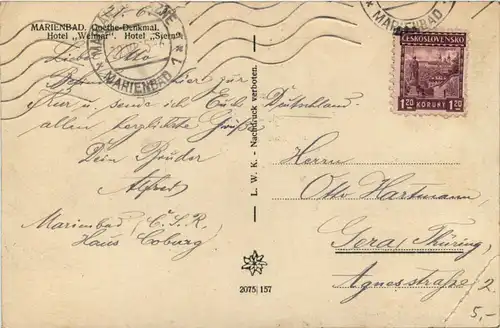 MARIENBAD. Goethe-Denkmal.
Hotel „Weimar". Hotel „Stern".
MARIENBAD 1
MARIENBAD
ČESKOSLOVENSKO
1.20 KORUNY 1.20
Lieber Otto
hier zur
Kur u. sende ich Euch
allen herzlichste Grüße
Dein Bruder
Alfred
Marienbad, Č.S.R.
Haus Coburg
L. W. K. - Nachdruck verboten.
2075/157
Deutschland.
Herrn
Otto Hartmann,
Gera, Thüring,
Agnesstraße 2
5,-